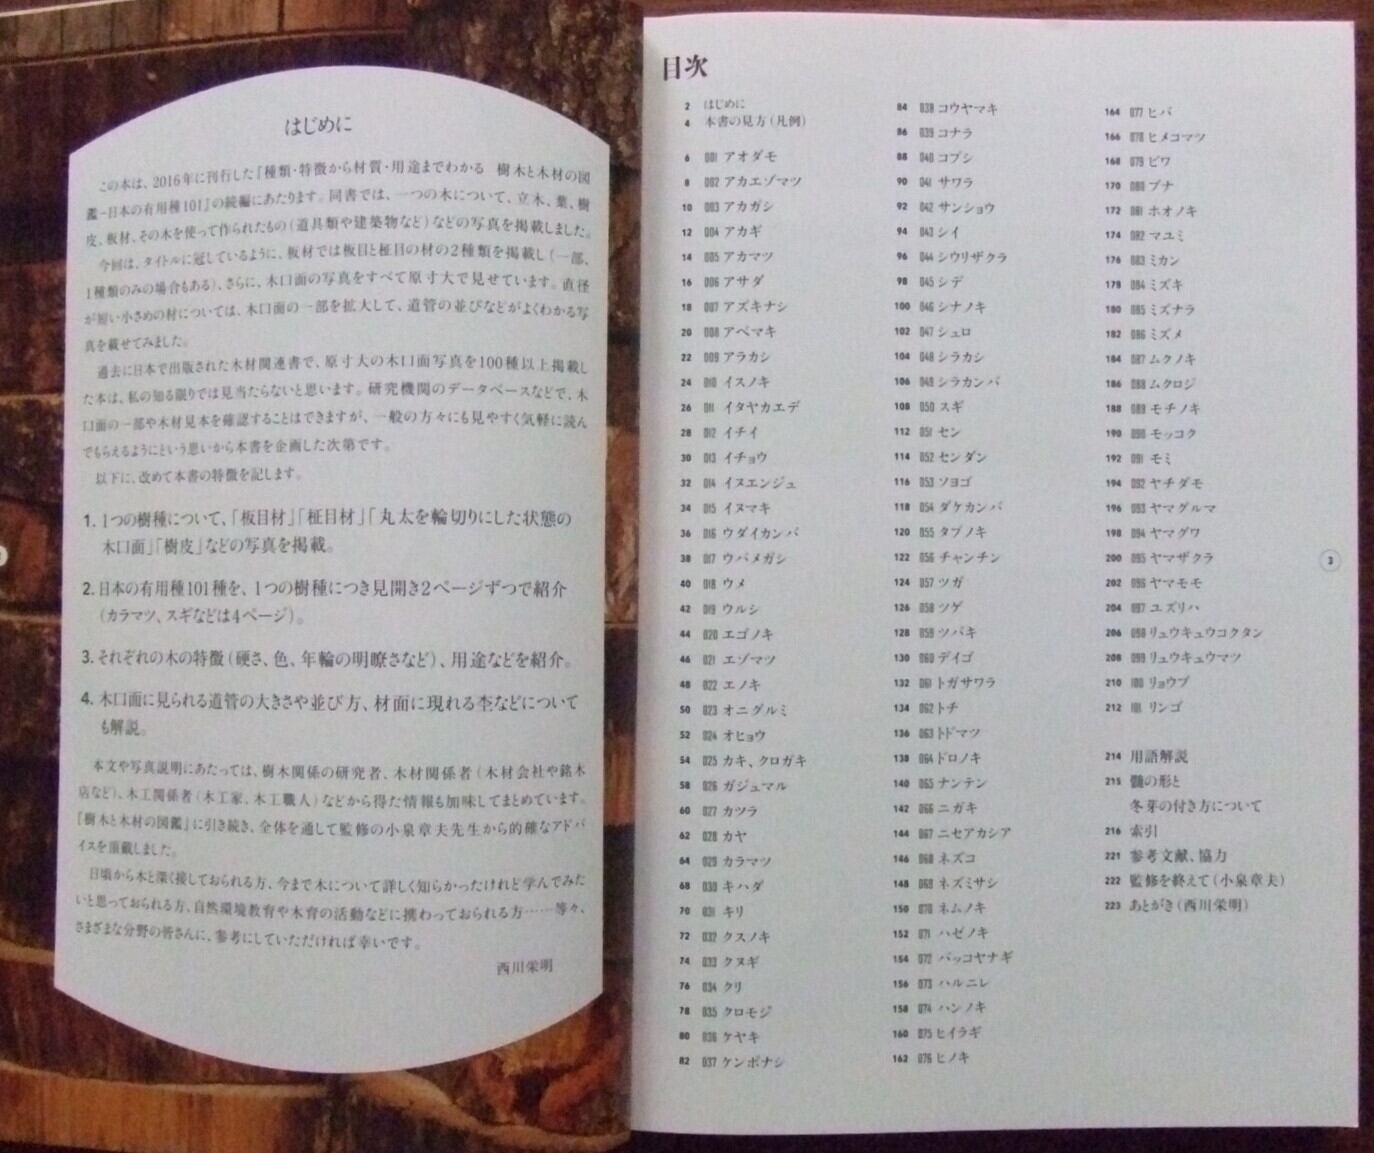 はじめに
この本は、2016年に刊行した『種類・特徴から材質・用途までわかる 樹木と木材の図
鑑－日本の有用種101』の続編にあたります。同書では、一つの木について、立木、葉、樹
皮、板材、その木を使って作られたもの（道具類や建築物など）などの写真を掲載しました。
今回は、タイトルに冠しているように、板材では板目と柾目の材の2種類を掲載し（一部、
1種類のみの場合もある）、さらに、木口面の写真をすべて原寸大で見せています。直径
が短い小さめの材については、木口面の一部を拡大して、道管の並びなどがよくわかる写
真を載せてみました。
過去に日本で出版された木材関連書で、原寸大の木口面写真を100種以上掲載し
た本は、私の知る限りでは見当たらないと思います。研究機関のデータベースなどで、木
口面の一部や木材見本を確認することはできますが、一般の方々にも見やすく気軽に読ん
でもらえるようにという思いから本書を企画した次第です。
以下に、改めて本書の特徴を記します。
1. 1つの樹種について、「板目材」「柾目材」「丸太を輪切りにした状態の
木口面」「樹皮」などの写真を掲載。
2. 日本の有用種101種を、1つの樹種につき見開き2ページずつで紹介
（カラマツ、スギなどは4ページ）。
3. それぞれの木の特徴（硬さ、色、年輪の明瞭さなど）、用途などを紹介。
4. 木口面に見られる道管の大きさや並び方、材面に現れる杢などについて
も解説。
本文や写真説明にあたっては、樹木関係の研究者、木材関係者（木材会社や銘木
店など）、木工関係者（木工家、木工職人）などから得た情報も加味してまとめています。
『樹木と木材の図鑑』に引き続き、全体を通して監修の小泉章夫先生から的確なアドバ
イスを頂戴しました。
日頃から木と深く接しておられる方、今まで木について詳しく知らなかったけれど学んでみた
いと思っておられる方、自然環境教育や木育の活動などに携わっておられる方……等々、
さまざまな分野の皆さんに、参考にしていただければ幸いです。
西川栄明
目次
2 はじめに
4 本書の見方（凡例）
6 001 アオダモ
8 002 アカエゾマツ
10 003 アカガシ
12 004 アカギ
14 005 アカマツ
16 006 アサダ
18 007 アズキナシ
20 008 アベマキ
22 009 アラカシ
24 010 イスノキ
26 011 イタヤカエデ
28 012 イチイ
30 013 イチョウ
32 014 イヌエンジュ
34 015 イヌマキ
36 016 ウダイカンバ
38 017 ウバメガシ
40 018 ウメ
42 019 ウルシ
44 020 エゴノキ
46 021 エゾマツ
48 022 エノキ
50 023 オニグルミ
52 024 オヒョウ
54 025 カキ、クロガキ
58 026 ガジュマル
60 027 カツラ
62 028 カヤ
64 029 カラマツ
68 030 キハダ
70 031 キリ
72 032 クスノキ
74 033 クヌギ
76 034 クリ
78 035 クロモジ
80 036 ケヤキ
82 037 ケンポナシ
84 038 コウヤマキ
86 039 コナラ
88 040 コブシ
90 041 サワラ
92 042 サンショウ
94 043 シイ
96 044 シウリザクラ
98 045 シデ
100 046 シナノキ
102 047 シュロ
104 048 シラカシ
106 049 シラカンバ
108 050 スギ
112 051 セン
114 052 センダン
116 053 ソヨゴ
118 054 ダケカンバ
120 055 タブノキ
122 056 チャンチン
124 057 ツガ
126 058 ツゲ
128 059 ツバキ
130 060 デイゴ
132 061 トガサワラ
134 062 トチ
136 063 トドマツ
138 064 ドロノキ
140 065 ナンテン
142 066 ニガキ
144 067 ニセアカシア
146 068 ネズコ
148 069 ネズミサシ
150 070 ネムノキ
152 071 ハゼノキ
154 072 バッコヤナギ
156 073 ハルニレ
158 074 ハンノキ
160 075 ヒイラギ
162 076 ヒノキ
164 077 ヒバ
166 078 ヒメコマツ
168 079 ビワ
170 080 ブナ
172 081 ホオノキ
174 082 マユミ
176 083 ミカン
178 084 ミズキ
180 085 ミズナラ
182 086 ミズメ
184 087 ムクノキ
186 088 ムクロジ
188 089 モチノキ
190 090 モッコク
192 091 モミ
194 092 ヤチダモ
196 093 ヤマグルマ
198 094 ヤマグワ
200 095 ヤマザクラ
202 096 ヤマモモ
204 097 ユズリハ
206 098 リュウキュウコクタン
208 099 リュウキュウマツ
210 100 リョウブ
212 101 リンゴ
214 用語解説
215 髄の形と
冬芽の付き方について
216 索引
221 参考文献、協力
222 監修を終えて（小泉章夫）
223 あとがき（西川栄明）
3